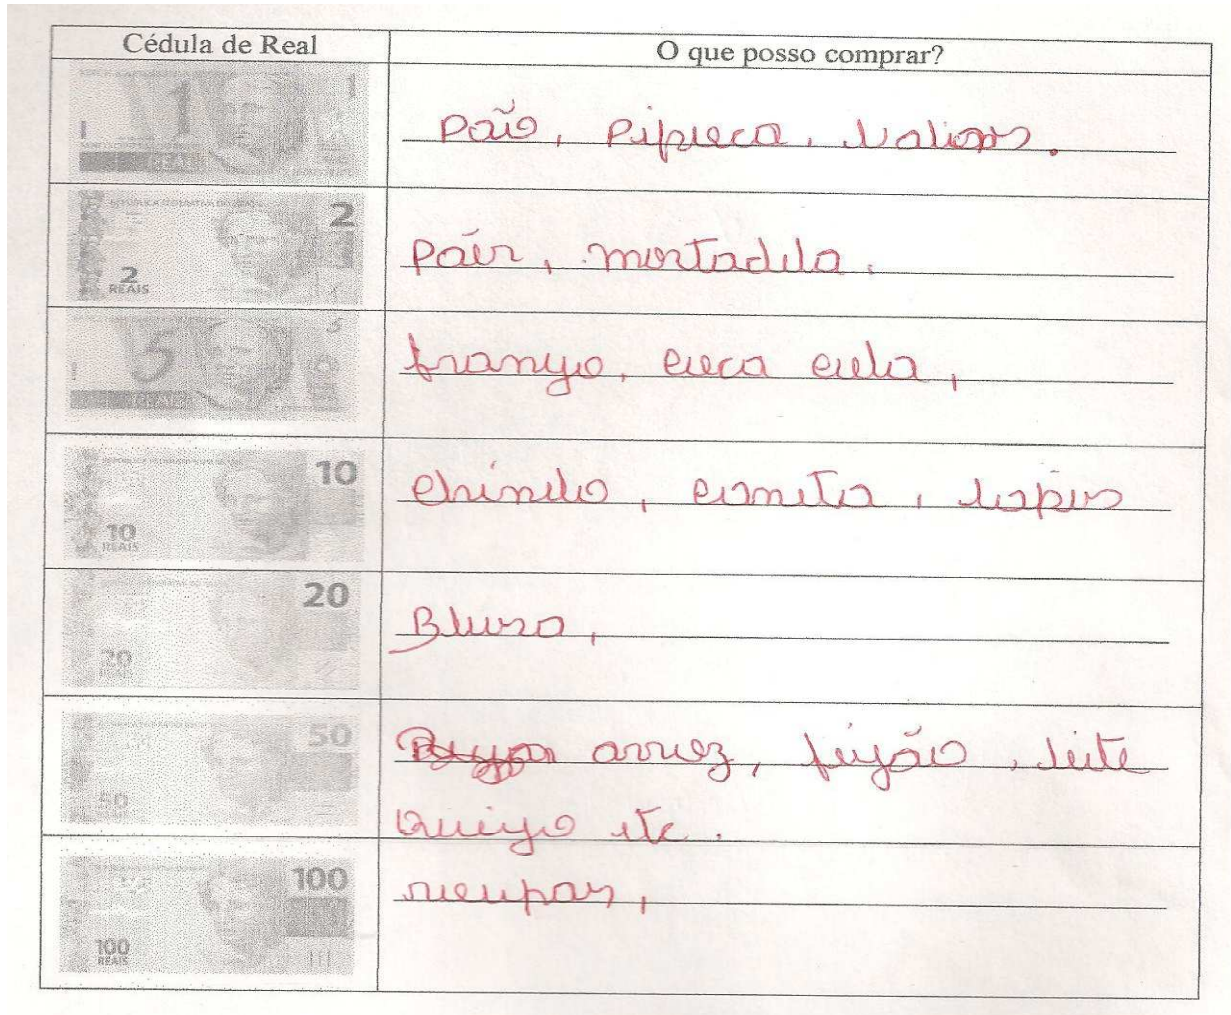 Cédula de Real
O que posso comprar?
1
1
1
REAL
pão, pipoca,
2
2
REAIS
pães, mortadela.
5
5
REAIS
frango, coca cola,
10
10
REAIS
chinelo, caneta, lapis
20
20
REAIS
Blusa,
50
50
arroz, feijão, leite
Queijo etc.
100
100
REAIS
roupas,